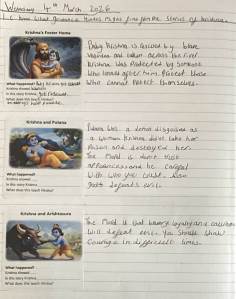 Wednesday 4th March 2026
Krishna's Foster Home
Baby Krishna is rescued by
and taken across the river
Krishna was Protected by someone
who cared after him. Protect those
who cannot Protect themselves.
What happened?
Krishna showed
In this story Krishna
What does this teach Hindus?
Krishna and Putana
Putana was a demon disguised as
a woman. Krishna
Poison and destroyed her.
The Moral is don't trust
appearances and be careful
with who you trust. Also
good defeats evil.
What happened?
Krishna showed
In this story Krishna
What does this teach Hindus?
Krishna and Arishtasura
The Moral is that bravery loyalty and
will defeat evil. You should show
Courage in difficult times.
What happened?
Krishna showed
In this story Krishna
What does this teach Hindus?